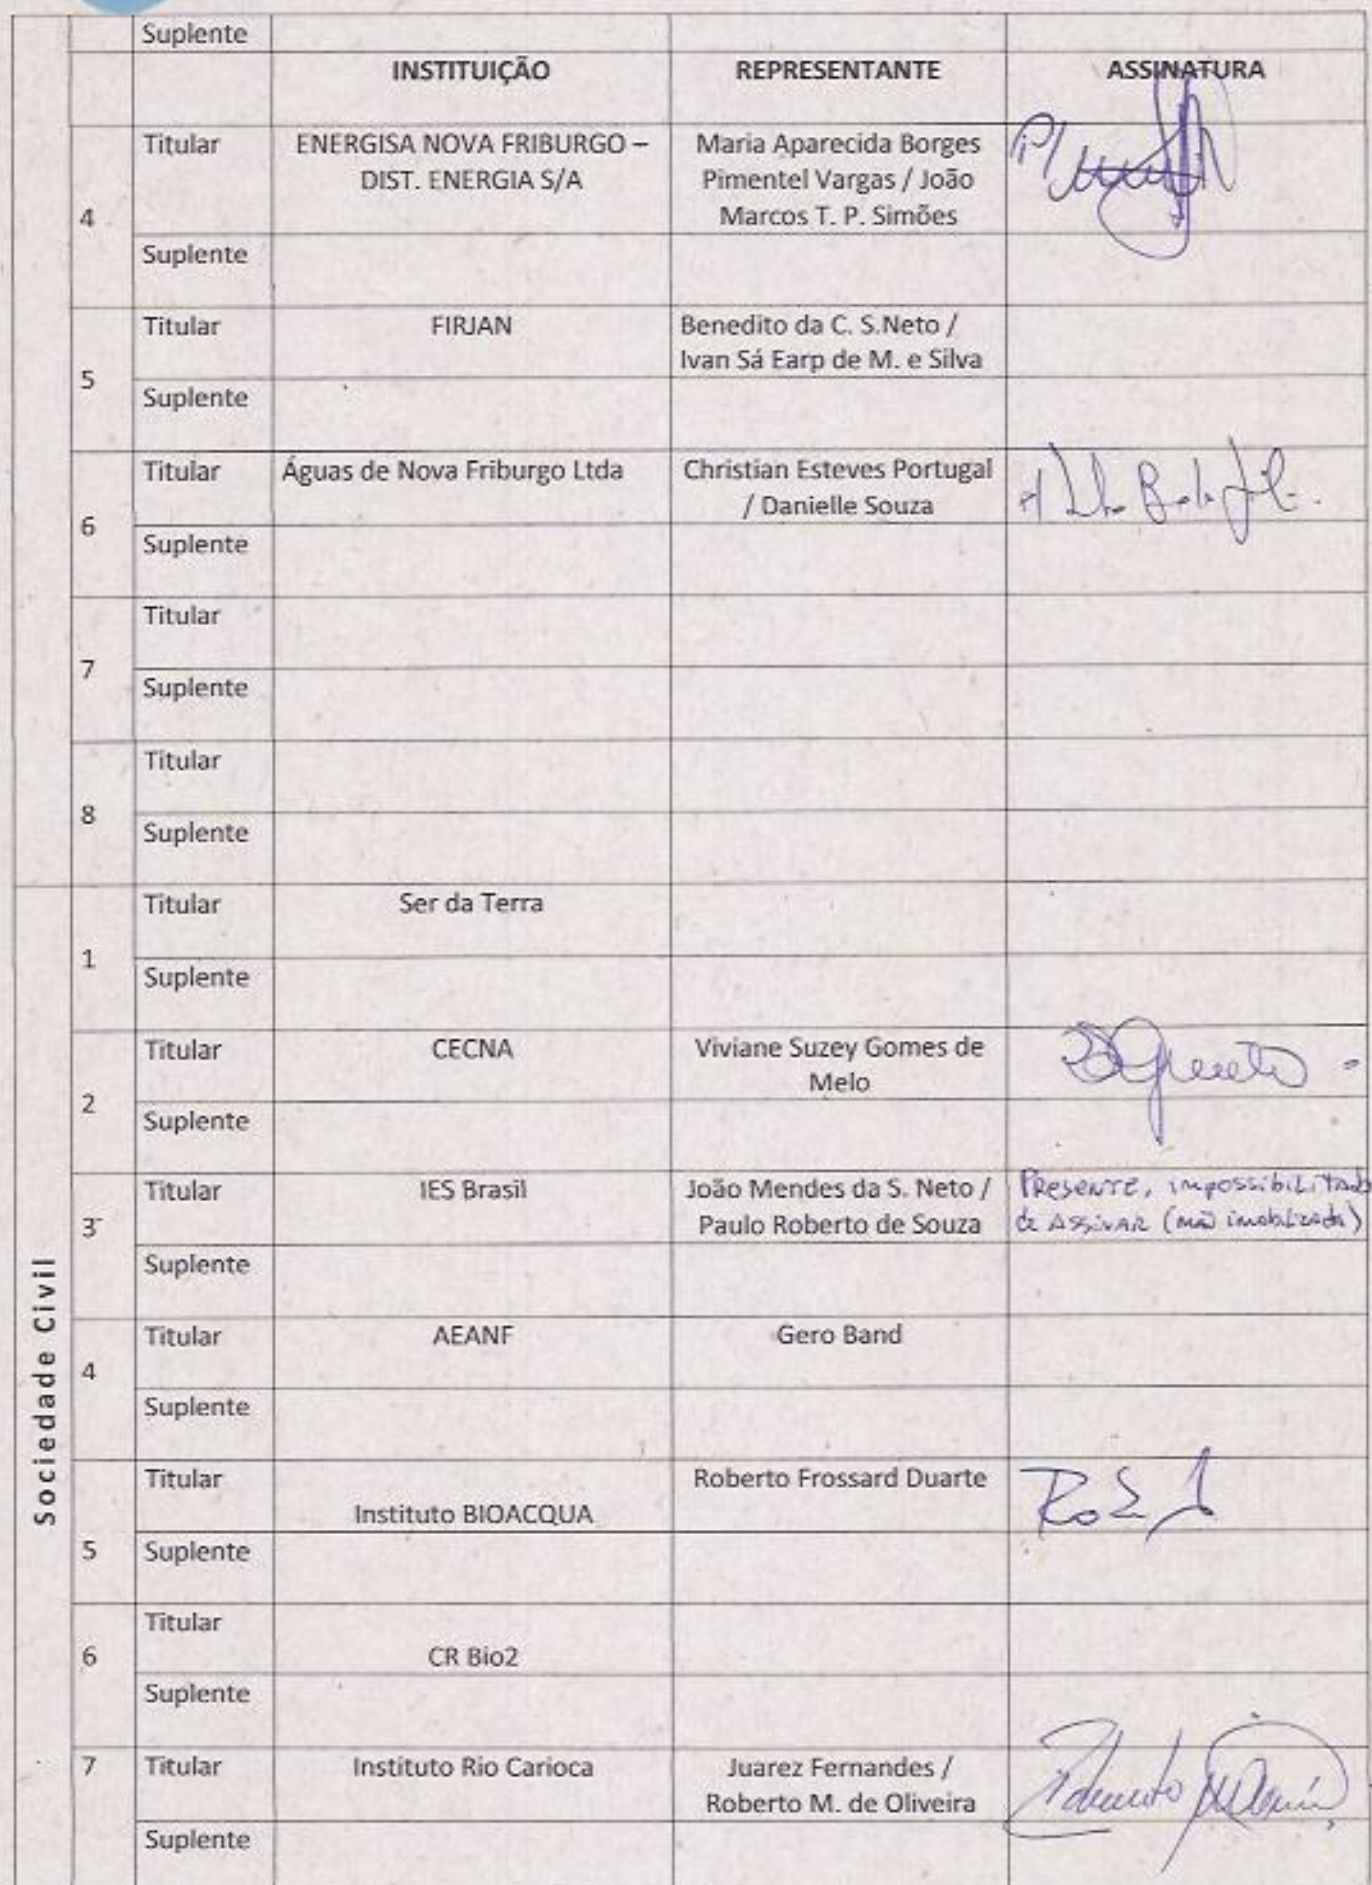 Suplente
INSTITUIÇÃO REPRESENTANTE ASSINATURA
Titular ENERGISA NOVA FRIBURGO – Maria Aparecida Borges
DIST. ENERGIA S/A Pimentel Vargas / João
4 Marcos T. P. Simões
Suplente
Titular FIRJAN Benedito da C. S.Neto /
Ivan Sá Earp de M. e Silva
5
Suplente
Titular Águas de Nova Friburgo Ltda Christian Esteves Portugal
/ Danielle Souza
6
Suplente
Titular
7
Suplente
Titular
8
Suplente
Sociedade Civil
Titular Ser da Terra
1
Suplente
Titular CECNA Viviane Suzey Gomes de
Melo
2
Suplente
Titular IES Brasil João Mendes da S. Neto / PRESENTE, impossibilitado
3 Paulo Roberto de Souza de ASSINAR (mão imobilizada)
Suplente
Titular AEANF Gero Band
4
Suplente
Titular Roberto Frossard Duarte
Instituto BIOACQUA
5
Suplente
Titular
6 CR Bio2
Suplente
7 Titular Instituto Rio Carioca Juarez Fernandes /
Roberto M. de Oliveira
Suplente